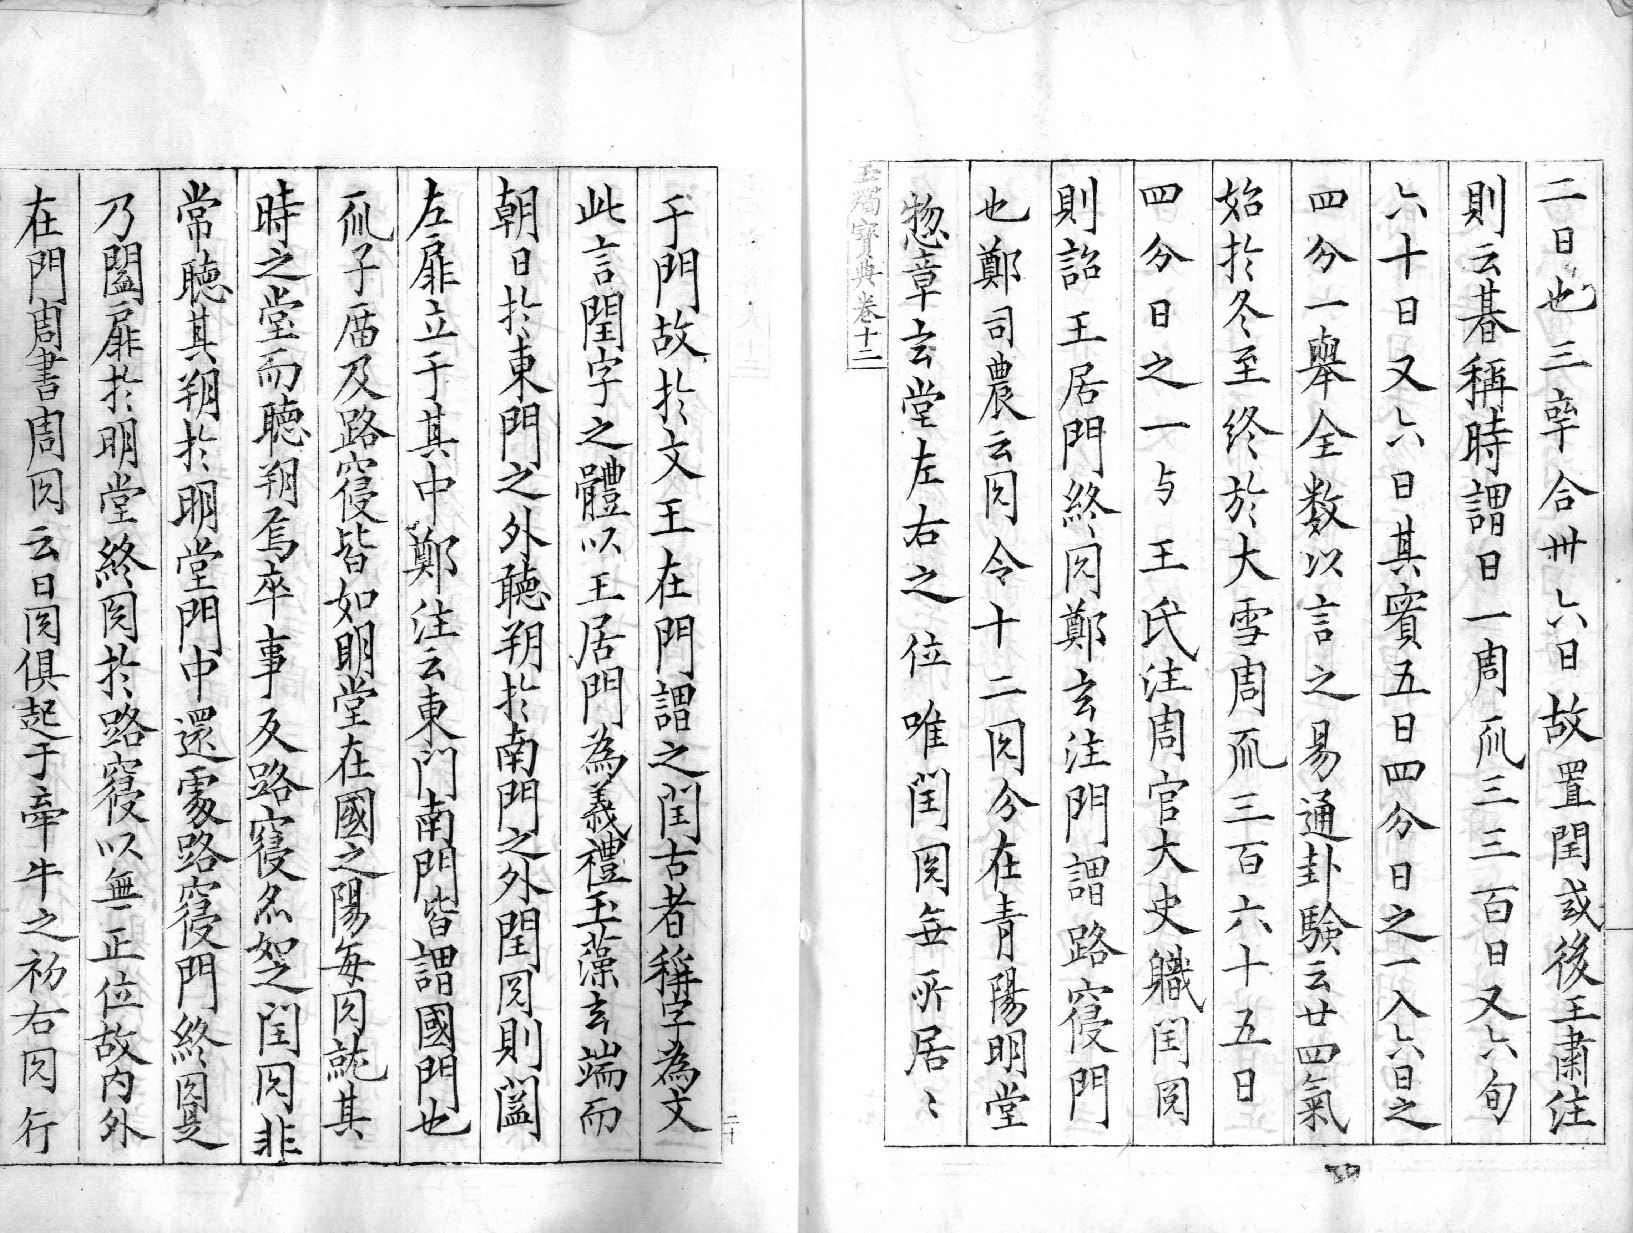 二日也三䇦合卅六日故置閏或後王肅注
則云朞稱時謂日一周𠑺三三百日又六旬
六十日又六日其實五日四分日之一入六日之
四分一舉全数以言之易通卦験云廿四氣
始於冬至終於大雪周𠑺三百六十五日
四分日之一与王氏注周官大史職閏囝
則詔王居門終囝鄭玄注門謂路寑門
也鄭司農云囝令十二囝分在青陽明堂
惣章玄堂左右之位唯閏囝無所居〻
玉燭寶典卷十二
于門故於文王在門謂之閏古者稱字為文
此言閏字之體以王居門為義禮玉藻玄端而
朝日於東門之外聽朔於南門之外閏囝則闔
左扉立于其中鄭注云東門南門皆謂國門也
𠑺子庿及路寑皆如明堂在國之陽每囝就其
時之堂而聽朔焉卒事反路寑名如之閏囝非
常聽其朔於明堂門中還處路寑門終囝是
乃闔扉於明堂終囝於路寑以無正位故内外
在門周書周囝云日囝俱起于牽牛之初右囝行
二十